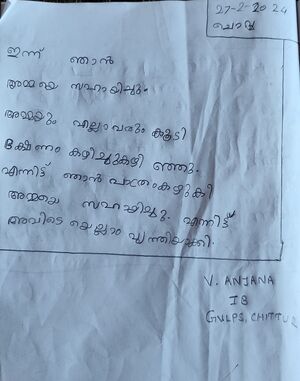 27-2-2024
ചൊവ്വ
ഇന്ന് ഞാൻ
അമ്മയെ സഹായിച്ചു.
അമ്മയും എല്ലാവരും കൂടി
ഭക്ഷണം കഴിച്ചുകഴി ഞ്ഞു.
എന്നിട്ട് ഞാൻ പാത്രംകഴുകി
അമ്മയെ സഹായിച്ചു. എന്നിട്ട്
അവിടെ യെല്ലാം വൃത്തിയാക്കി.
V. ANJANA
I B
GVLPS, CHITTUR